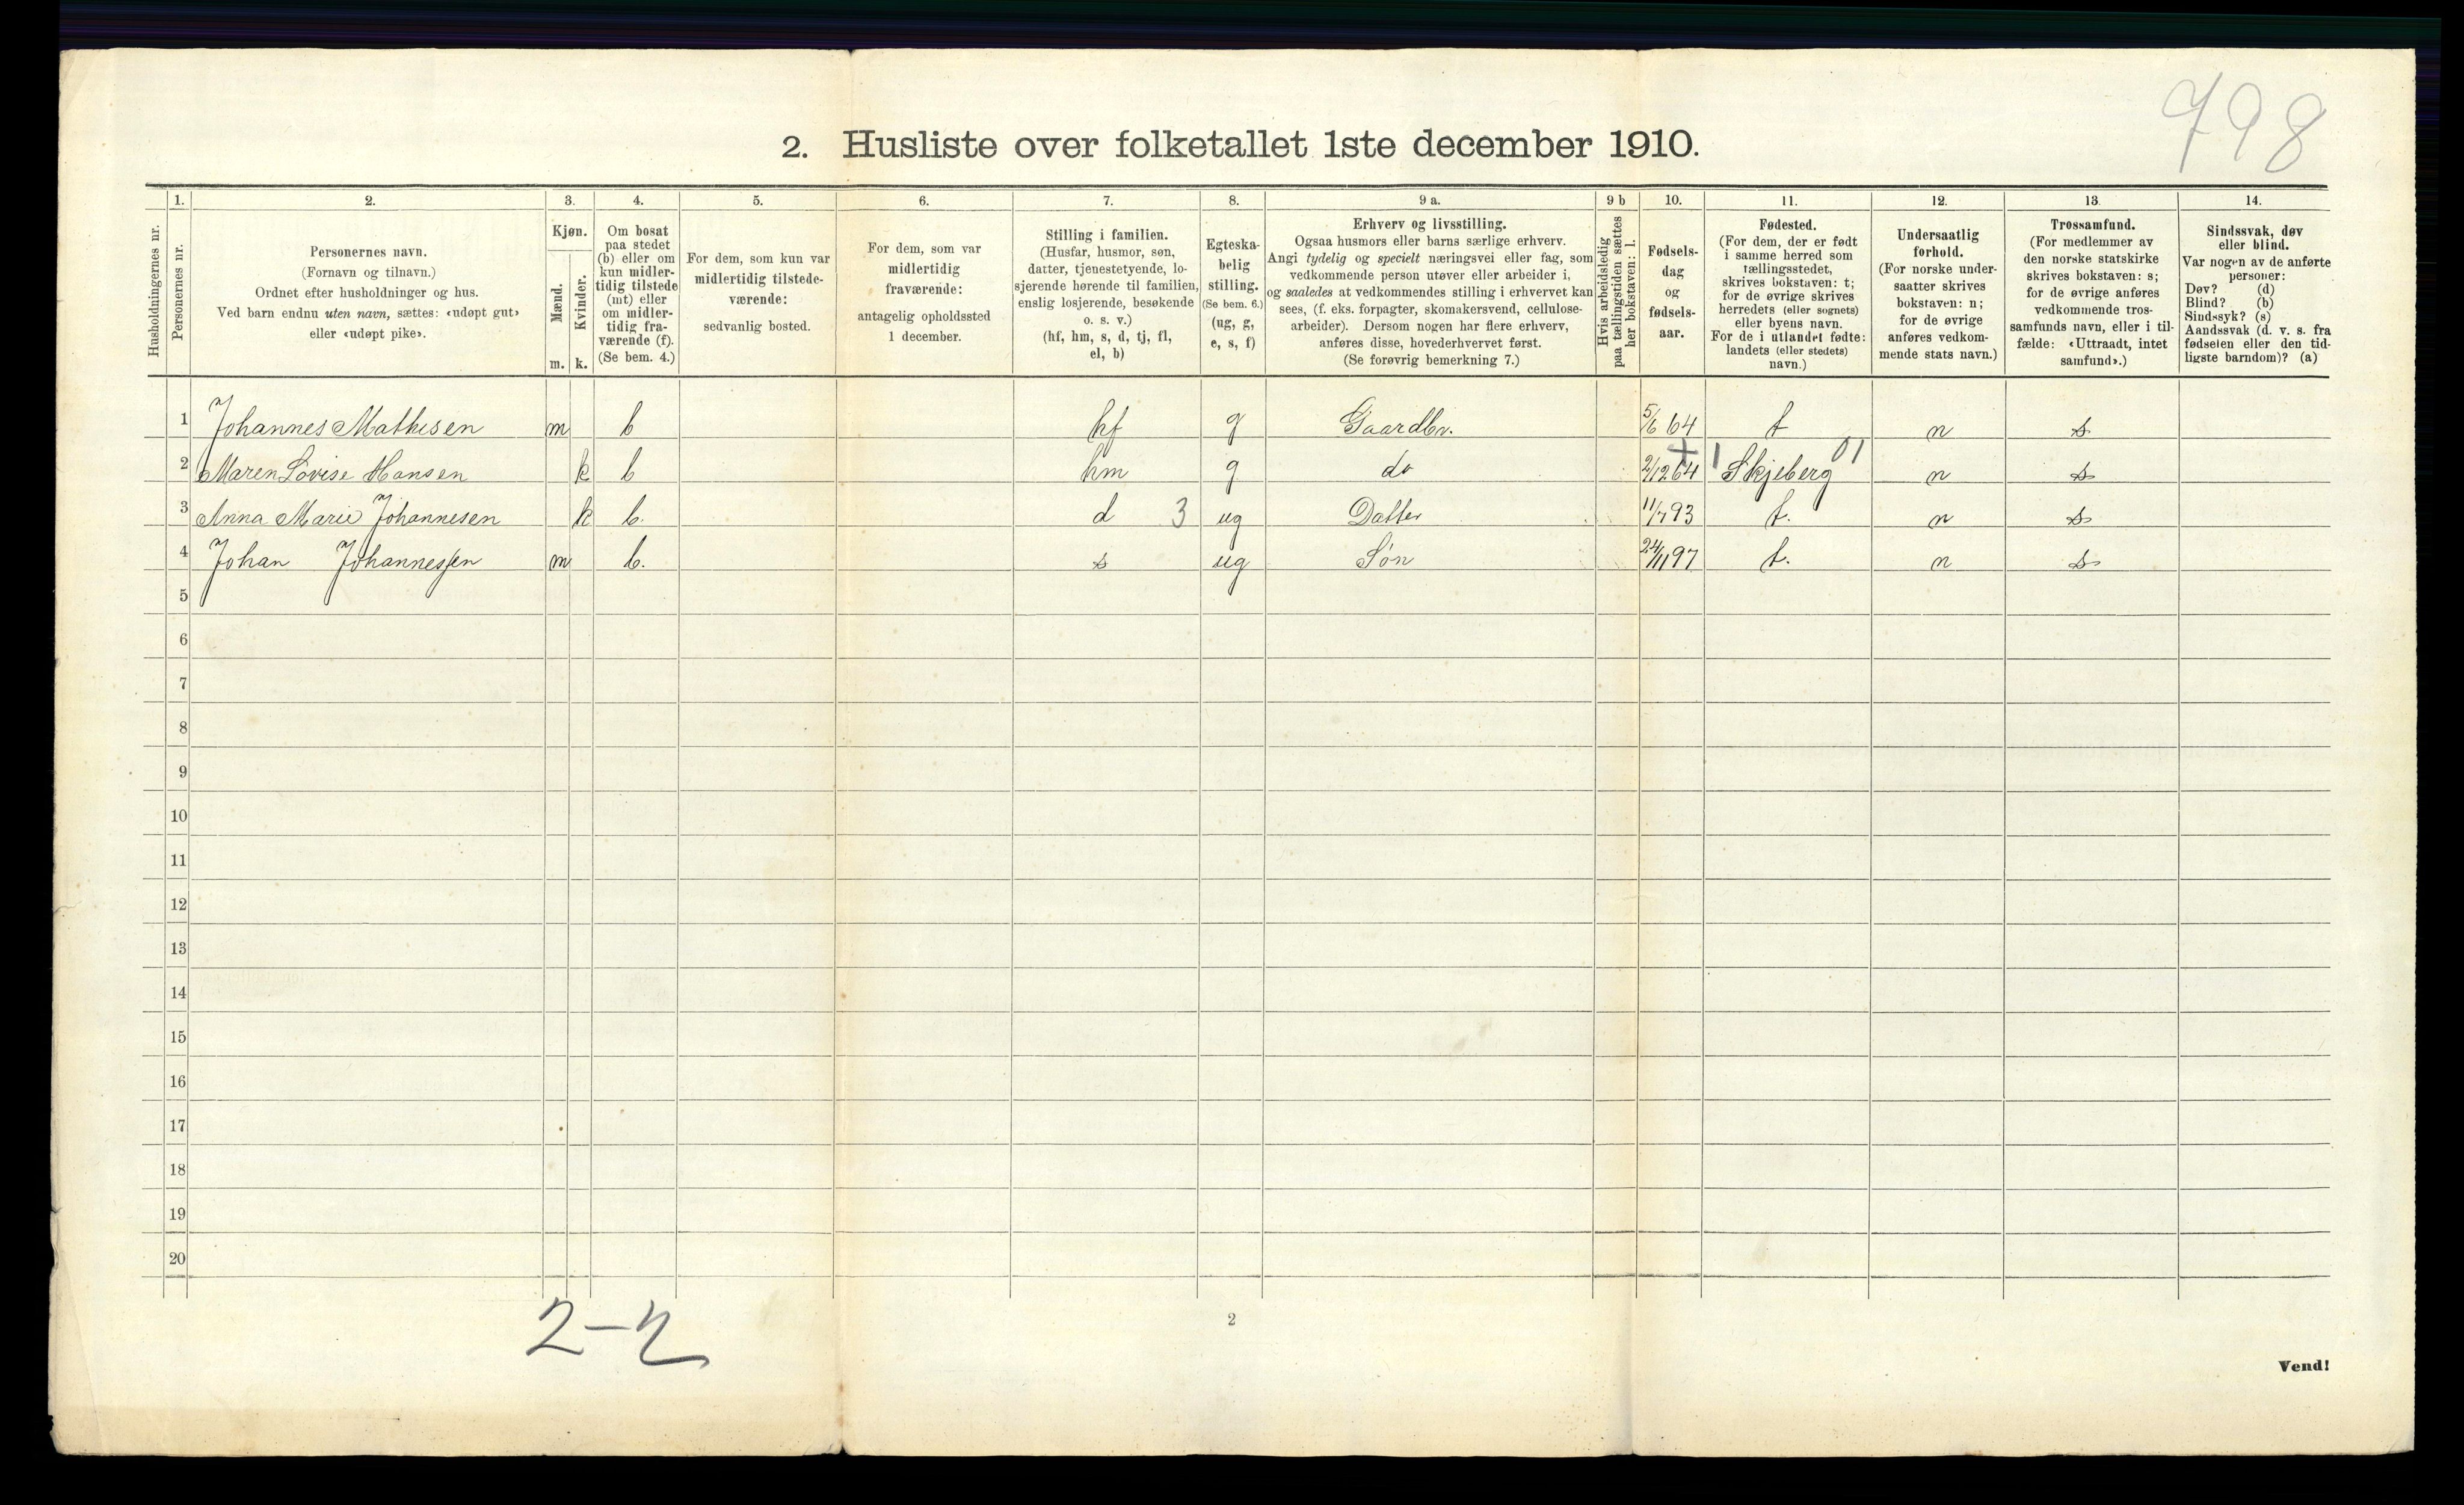 798
2. Husliste over folketallet 1ste december 1910.
Husholdningernes nr.
1.
Personernes nr.
2.
Personernes navn.
(Fornavn og tilnavn.)
Ordnet efter husholdninger og hus.
Ved barn endnu uten navn, sættes: «udøpt gut»
eller «udøpt pike».
3.
Kjøn.
Mænd.
m.
Kvinder.
k.
4.
Om bosat
paa stedet
(b) eller om
kun midler-
tidig tilstede
(mt) eller
om midler-
tidig fra-
værende (f).
(Se bem. 4.)
5.
For dem, som kun var
midlertidig tilstede-
værende:
sedvanlig bosted.
6.
For dem, som var
midlertidig
fraværende:
antagelig opholdssted
1 december.
7.
Stilling i familien.
(Husfar, husmor, søn,
datter, tjenestetyende, lo-
sjerende hørende til familien,
enslig losjerende, besøkende
o. s. v.)
(hf, hm, s, d, tj, fl,
el, b)
8.
Egteska-
belig
stilling.
(Se bem. 6.)
(ug, g,
e, s, f)
9 a.
Erhverv og livsstilling.
Ogsaa husmors eller barns særlige erhverv.
Angi tydelig og specielt næringsvei eller fag, som
vedkommende person utøver eller arbeider i,
og saaledes at vedkommendes stilling i erhvervet kan
sees, (f. eks. forpagter, skomakersvend, cellulose-
arbeider). Dersom nogen har flere erhverv,
anføres disse, hovederhvervet først.
(Se forøvrig bemerkning 7.)
9 b
Hvis arbeidsledig
paa tællingstiden sættes
her bokstaven: l.
10.
Fødsels-
dag
og
fødsels-
aar.
11.
Fødested.
(For dem, der er født
i samme herred som
tællingsstedet,
skrives bokstaven: t;
for de øvrige skrives
herredets (eller sognets)
eller byens navn.
For de i utlandet fødte:
landets (eller stedets)
navn.)
12.
Undersaatlig
forhold.
(For norske under-
saatter skrives
bokstaven: n;
for de øvrige
anføres vedkom-
mende stats navn.)
13.
Trossamfund.
(For medlemmer av
den norske statskirke
skrives bokstaven: s;
for de øvrige anføres
vedkommende tros-
samfunds navn, eller i til-
fælde: «Uttraadt, intet
samfund».)
14.
Sindssvak, døv
eller blind.
Var nogen av de anførte
personer:
Døv? (d)
Blind? (b)
Sindssyk? (s)
Aandssvak (d. v. s. fra
fødselen eller den tid-
ligste barndom)? (a)
1 Johannes Mathisen m b hf g Gaardbr. 5/6 64 t n s
2 Maren Lovise Hansen k b hm g do 2/12 64 + 1 Skjeberg 01 n s
3 Anna Marie Johannesen k b. d 3 ug Datter 11/7 93 t. n s
4 Johan Johannessen m b. s ug Søn 24/11 97 t. n s
5
6
7
8
9
10
11
12
13
14
15
16
17
18
19
20
2-2
2
Vend!